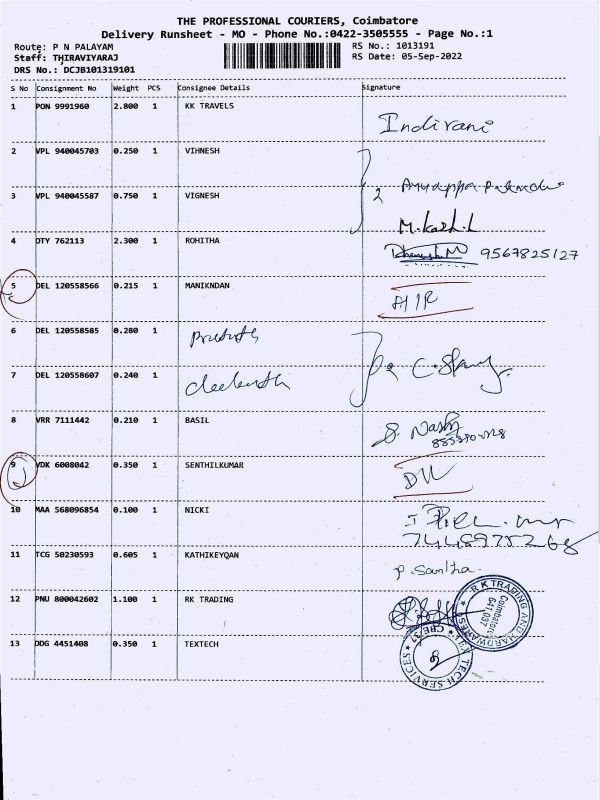 THE PROFESSIONAL COURIERS, Coimbatore
Delivery Runsheet - MO - Phone No.:0422-3505555 - Page No.:1
Route: P N PALAYAM RS No.: 1013191
Staff: THIRAVIYARAJ RS Date: 05-Sep-2022
DRS No.: DCJB101319101
S No Consignment No Weight PCS Consignee Details Signature
1 PON 9991960 2.800 1 KK TRAVELS
Indirani
2 VPL 940045703 0.250 1 VIHNESH
3 VPL 940045587 0.750 1 VIGNESH
2
4 DTY 762113 2.300 1 ROHITHA
9567825127
5 DEL 120558566 0.215 1 MANIKNDAN
6 DEL 120558585 0.280 1
7 DEL 120558607 0.240 1
8 VRR 7111442 0.210 1 BASIL
9 VDK 6008042 0.350 1 SENTHILKUMAR
10 MAA 568096854 0.100 1 NICKI
11 TCG 50230593 0.605 1 KATHIKEYQAN
P. Santha.
12 PNU 800042602 1.100 1 RK TRADING
R K TRADING AND HARDWARES
Coimbatore
641 037
13 DDG 4451408 0.350 1 TEXTECH
TEX TECH SERVICES
CBE-37